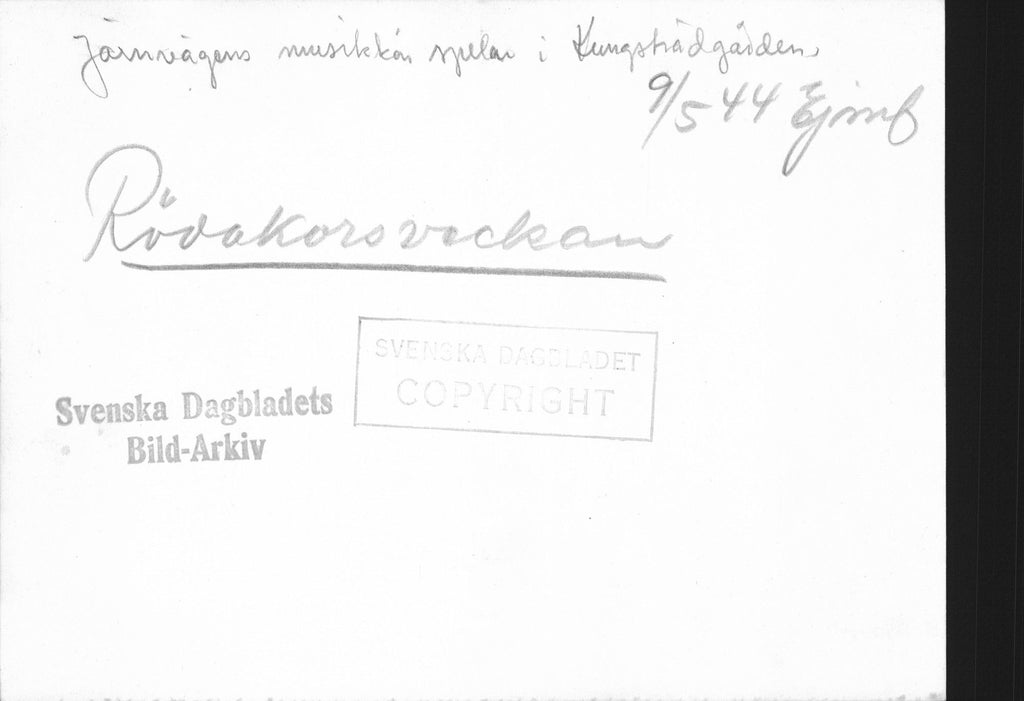 Järnvägens musikkår spelar i Kungsträdgården
9/5 44 Ej inf
Rödakorsveckan
SVENSKA DAGBLADET
COPYRIGHT
Svenska Dagbladets
Bild-Arkiv